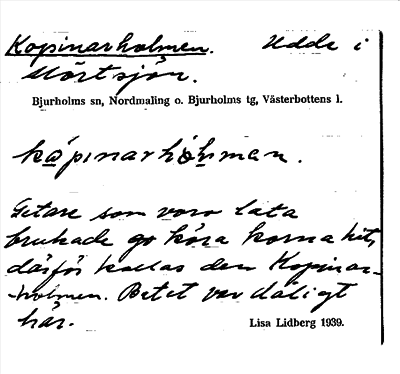 Kopinarholmen. Udde i
Mörtsjön.
Bjurholms sn, Nordmaling o. Bjurholms tg, Västerbottens l.
kåpınarhòḷman.
Getare som voro lata
brukade gå köra korna hit,
därför kallas den Kopinar-
-holmen. Betet var dåligt
här.
Lisa Lidberg 1939.